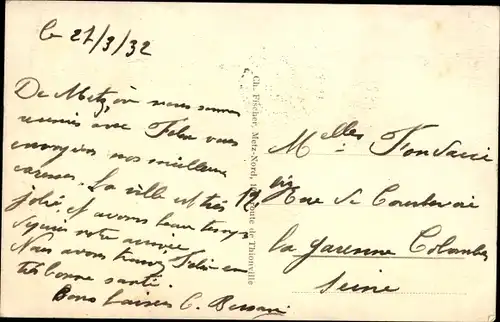 le 27/3/32
De Metz, où nous sommes
réunis avec Félix vous
envoyons nos meilleures
caresses. La ville est très
jolie, et avons beau temps
depuis notre arrivée
Nous avons trouvé Félix en
très bonne santé.
Bons baisers C.
Ch. Fischer, Metz-Nord, route de Thionville
Melles
12 bis Rue de Courbevoie
la Garenne Colombes
Seine